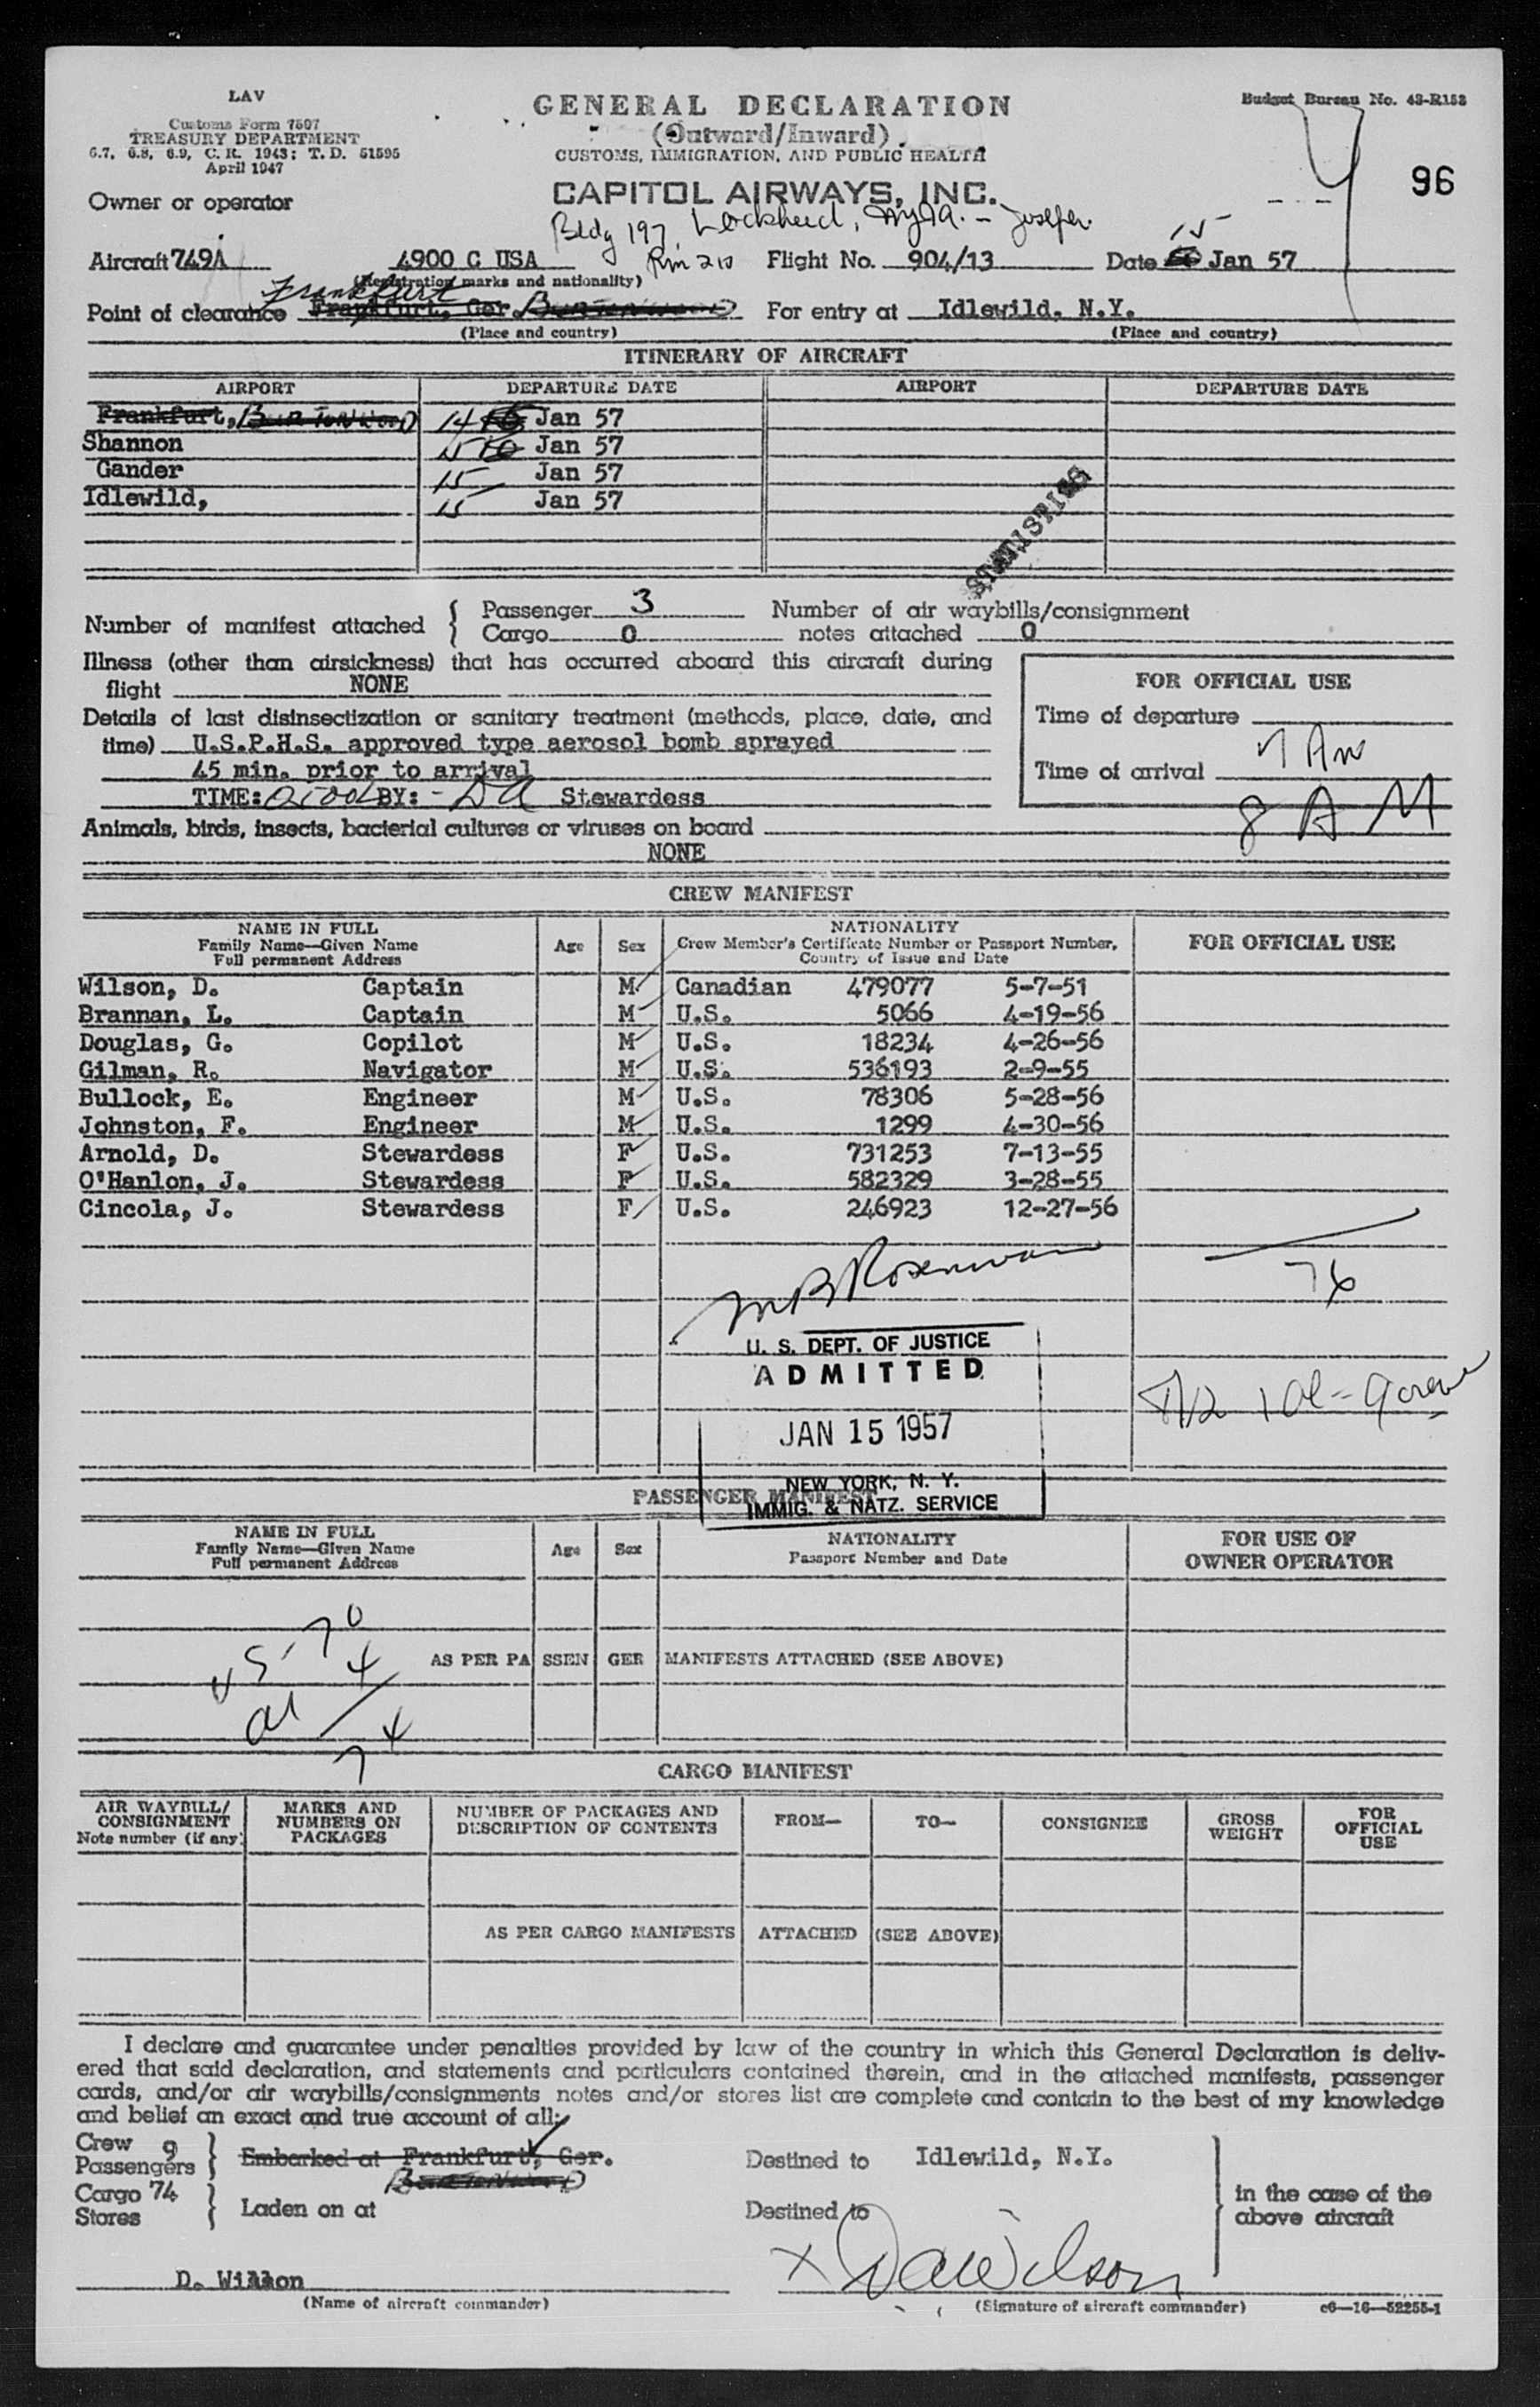 LAV
Customs Form 7507
TREASURY DEPARTMENT
6.7, 6.8, 6.9, C. R. 1943; T. D. 51595
April 1947
GENERAL DECLARATION
(Outward/Inward)
CUSTOMS, IMMIGRATION, AND PUBLIC HEALTH
Budget Bureau No. 43-R153
96
Owner or operator
CAPITOL AIRWAYS, INC.
Bldg 197, Lockheed,
Rm 210
15
Aircraft 749A 4900 C USA Flight No. 904/13 Date Jan 57
(Registration marks and nationality)
Frankfurt
Point of clearance Frankfurt, Ger. Burtonwood For entry at Idlewild, N.Y.
(Place and country) (Place and country)
ITINERARY OF AIRCRAFT
AIRPORT DEPARTURE DATE AIRPORT DEPARTURE DATE
Frankfurt, Burtonwood 14 Jan 57
Shannon 15 Jan 57
Gander 15 Jan 57
Idlewild, 15 Jan 57
STATISTICS
Number of manifest attached { Passenger 3 Number of air waybills/consignment
Cargo 0 notes attached 0
Illness (other than airsickness) that has occurred aboard this aircraft during
flight NONE
Details of last disinsectization or sanitary treatment (methods, place, date, and
time) U.S.P.H.S. approved type aerosol bomb sprayed
45 min. prior to arrival
TIME: BY: - DA Stewardess
FOR OFFICIAL USE
Time of departure
7 Am
Time of arrival
8 AM
Animals, birds, insects, bacterial cultures or viruses on board
NONE
CREW MANIFEST
NAME IN FULL
Family Name—Given Name
Full permanent Address
Age Sex
NATIONALITY
Crew Member's Certificate Number or Passport Number,
Country of Issue and Date
FOR OFFICIAL USE
Wilson, D. Captain M Canadian 479077 5-7-51
Brannan, L. Captain M U.S. 5066 4-19-56
Douglas, G. Copilot M U.S. 18234 4-26-56
Gilman, R. Navigator M U.S. 536193 2-9-55
Bullock, E. Engineer M U.S. 78306 5-28-56
Johnston, F. Engineer M U.S. 1299 4-30-56
Arnold, D. Stewardess F U.S. 731253 7-13-55
O'Hanlon, J. Stewardess F U.S. 582329 3-28-55
Cincola, J. Stewardess F U.S. 246923 12-27-56
U. S. DEPT. OF JUSTICE
ADMITTED
JAN 15 1957
NEW YORK, N. Y.
IMMIG. & NATZ. SERVICE
PASSENGER MANIFEST
NAME IN FULL
Family Name—Given Name
Full permanent Address
Age Sex
NATIONALITY
Passport Number and Date
FOR USE OF
OWNER OPERATOR
US - 70
al 4
74
AS PER PASSENGER MANIFESTS ATTACHED (SEE ABOVE)
CARGO MANIFEST
AIR WAYBILL/
CONSIGNMENT
Note number (if any)
MARKS AND
NUMBERS ON
PACKAGES
NUMBER OF PACKAGES AND
DESCRIPTION OF CONTENTS
FROM— TO— CONSIGNEE
GROSS
WEIGHT
FOR
OFFICIAL
USE
AS PER CARGO MANIFESTS ATTACHED (SEE ABOVE)
I declare and guarantee under penalties provided by law of the country in which this General Declaration is deliv-
ered that said declaration, and statements and particulars contained therein, and in the attached manifests, passenger
cards, and/or air waybills/consignments notes and/or stores list are complete and contain to the best of my knowledge
and belief an exact and true account of all:
Crew 9
Passengers
Embarked at Frankfurt, Ger. Destined to Idlewild, N.Y.
Burtonwood
Cargo 74
Stores
Laden on at Destined to
in the case of the
above aircraft
D. Wilson
X D A Wilson
(Name of aircraft commander) (Signature of aircraft commander) c6—16—52255-1